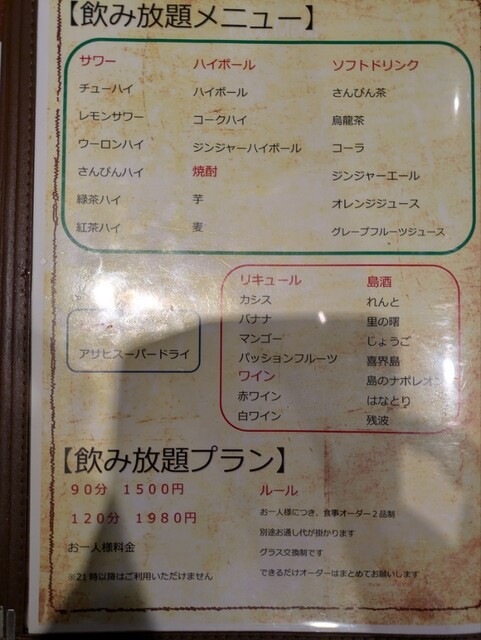 【飲み放題メニュー】
サワー
チューハイ
レモンサワー
ウーロンハイ
さんぴんハイ
緑茶ハイ
紅茶ハイ
ハイボール
ハイボール
コークハイ
ジンジャーハイボール
焼酎
芋
麦
ソフトドリンク
さんぴん茶
烏龍茶
コーラ
ジンジャーエール
オレンジジュース
グレープフルーツジュース
アサヒスーパードライ
リキュール
カシス
バナナ
マンゴー
パッションフルーツ
ワイン
赤ワイン
白ワイン
島酒
れんと
里の曙
じょうご
喜界島
島のナポレオン
はなとり
残波
【飲み放題プラン】
90分 1500円
120分 1980円
お一人様料金
※21時以降はご利用いただけません
ルール
お一人様につき、食事オーダー2品制
別途お通し代が掛かります
グラス交換制です
できるだけオーダーはまとめてお願いします